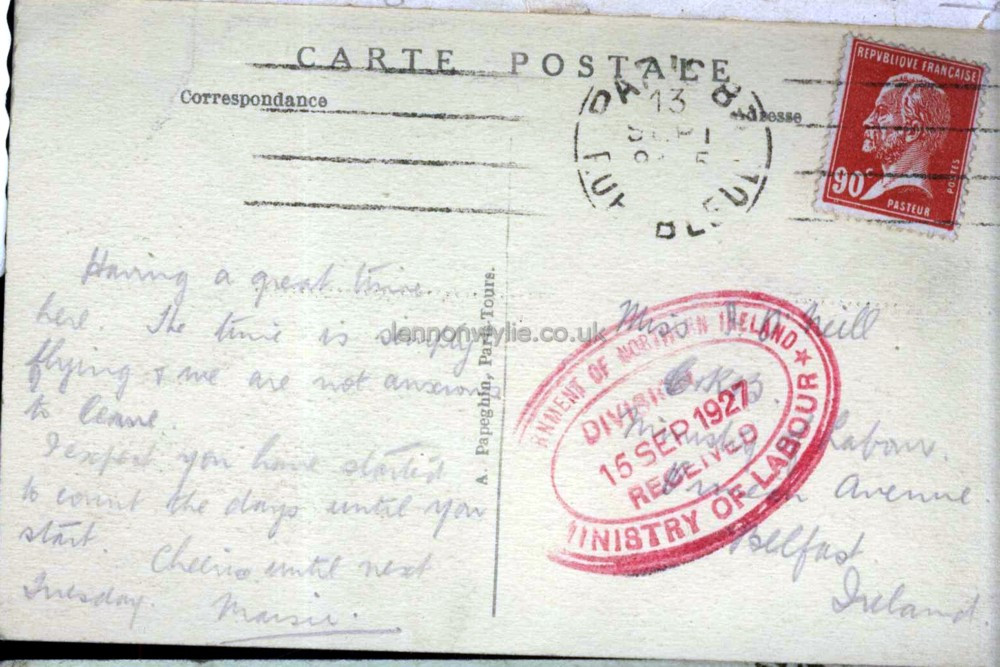 CARTE POSTALE
Correspondance
Adresse
REPVBLIQVE FRANÇAISE
90c
POSTES
PASTEUR
13
Having a great time
here. The time is simply
flying & we are not anxious
to leave.
I expect you have started
to count the days until you
start.
Cheerio until next
Tuesday. Maisie.
A. Papeghin, Paris-Tours.
lennonwylie.co.uk
Miss O'Neill
Ministry Labour.
Avenue.
Belfast.
Ireland.
RNMENT OF NORTHERN IRELAND
DIVISION
15 SEP 1927
RECEIVED
MINISTRY OF LABOUR